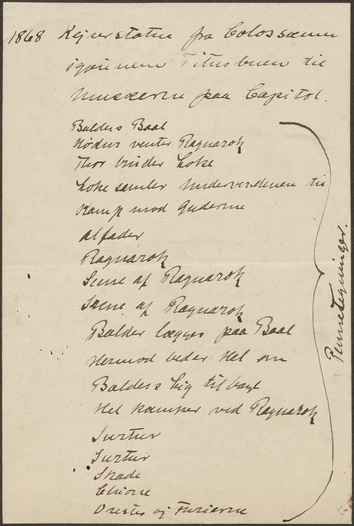 1868 Kejserstatue fra Colosseum
igjennem Titusbuen til
Museerne paa Capitol.
Balders Baal
Hødur venter Ragnarok
Thor binder Loke
Loke samler Underverdenen til
Kamp mod Guderne
Alfader
Ragnarok
Scene af Ragnarok
Scene af Ragnarok
Balder lægges paa Baal
Hermod beder Hel om
Balders Lig tilbage
Hel kæmper ved Ragnarok
Surtur
Surtur
Skade
Chione
Orestes og Furierne
Pennetegninger.